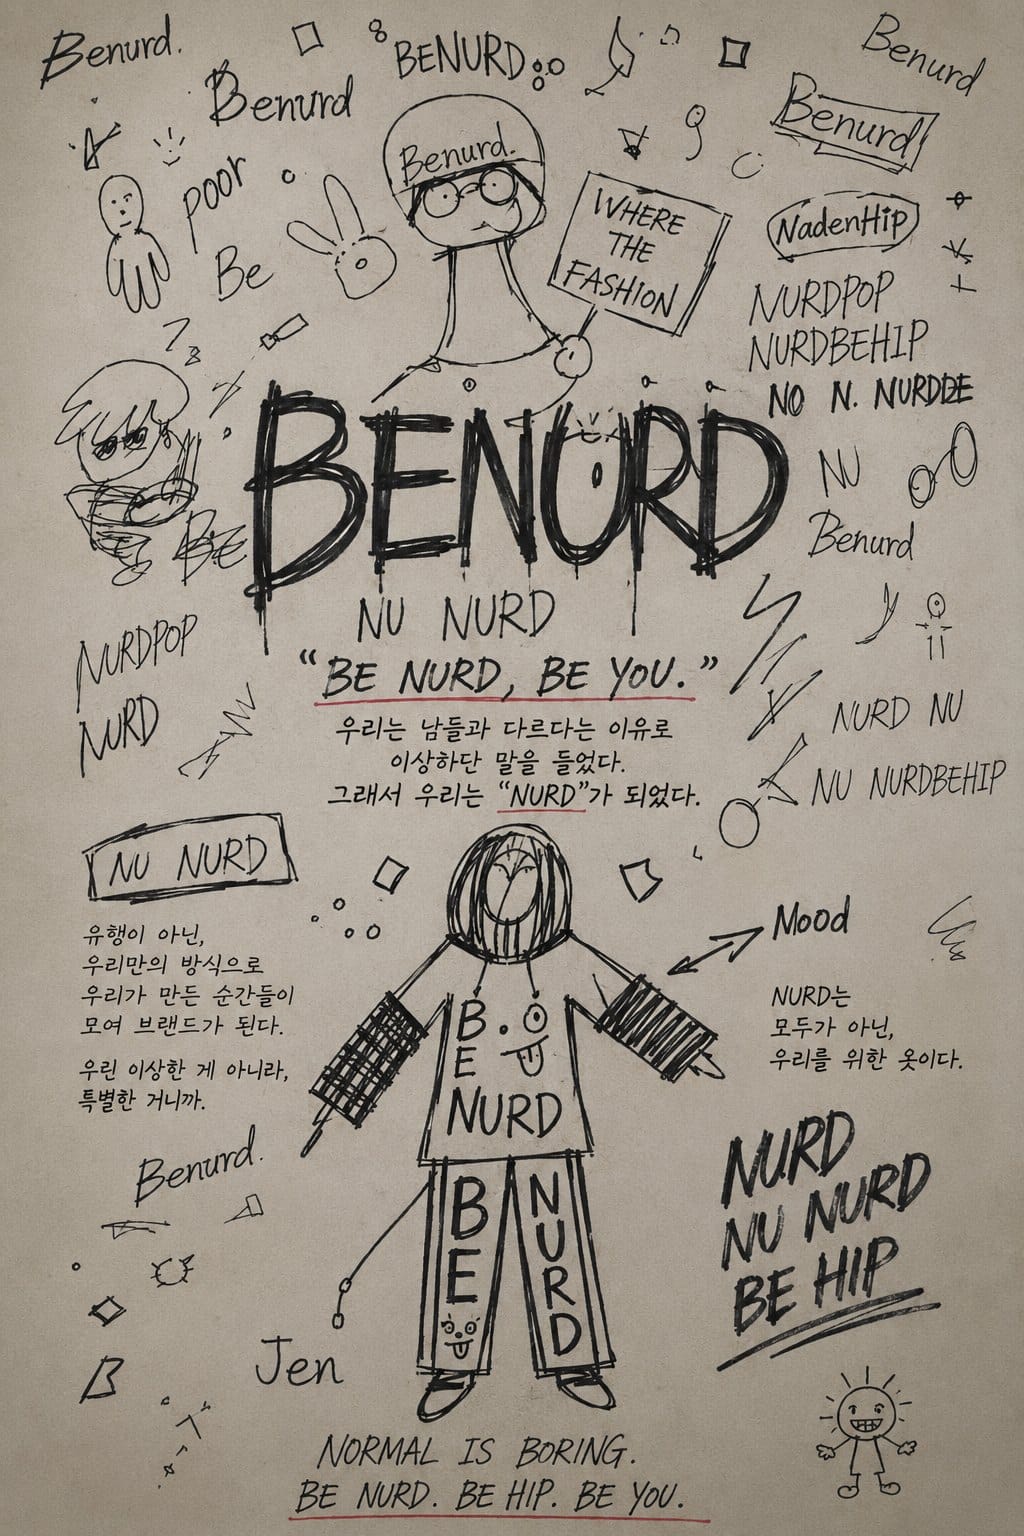 Benurd.
Benurd
BENURD
Benurd
Benurd
Benurd.
poor
Be
WHERE
THE
FASHION
NadenHip
NURDPOP
NURDBEHIP
NO N. NURDZE
BENURD
BE
NU
Benurd
NU NURD
"BE NURD, BE YOU."
우리는 남들과 다르다는 이유로
이상하단 말을 들었다.
그래서 우리는 "NURD"가 되었다.
NURDPOP
NURD
NURD NU
NU NURDBEHIP
NU NURD
유행이 아닌,
우리만의 방식으로
우리가 만든 순간들이
모여 브랜드가 된다.
우린 이상한 게 아니라,
특별한 거니까.
Mood
NURD는
모두가 아닌,
우리를 위한 옷이다.
BE
NURD
BE
NURD
Benurd.
NURD
NU NURD
BE HIP
B
Jen
NORMAL IS BORING.
BE NURD. BE HIP. BE YOU.